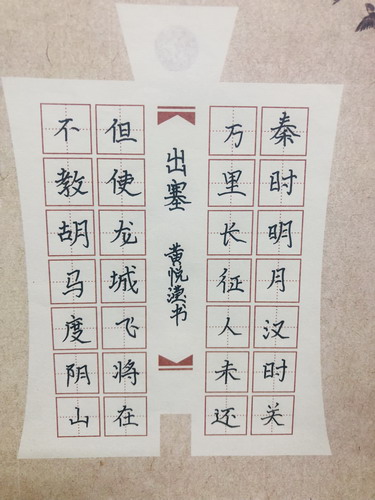 秦时明月汉时关
万里长征人未还
出塞
黄悦滢书
但使龙城飞将在
不教胡马度阴山